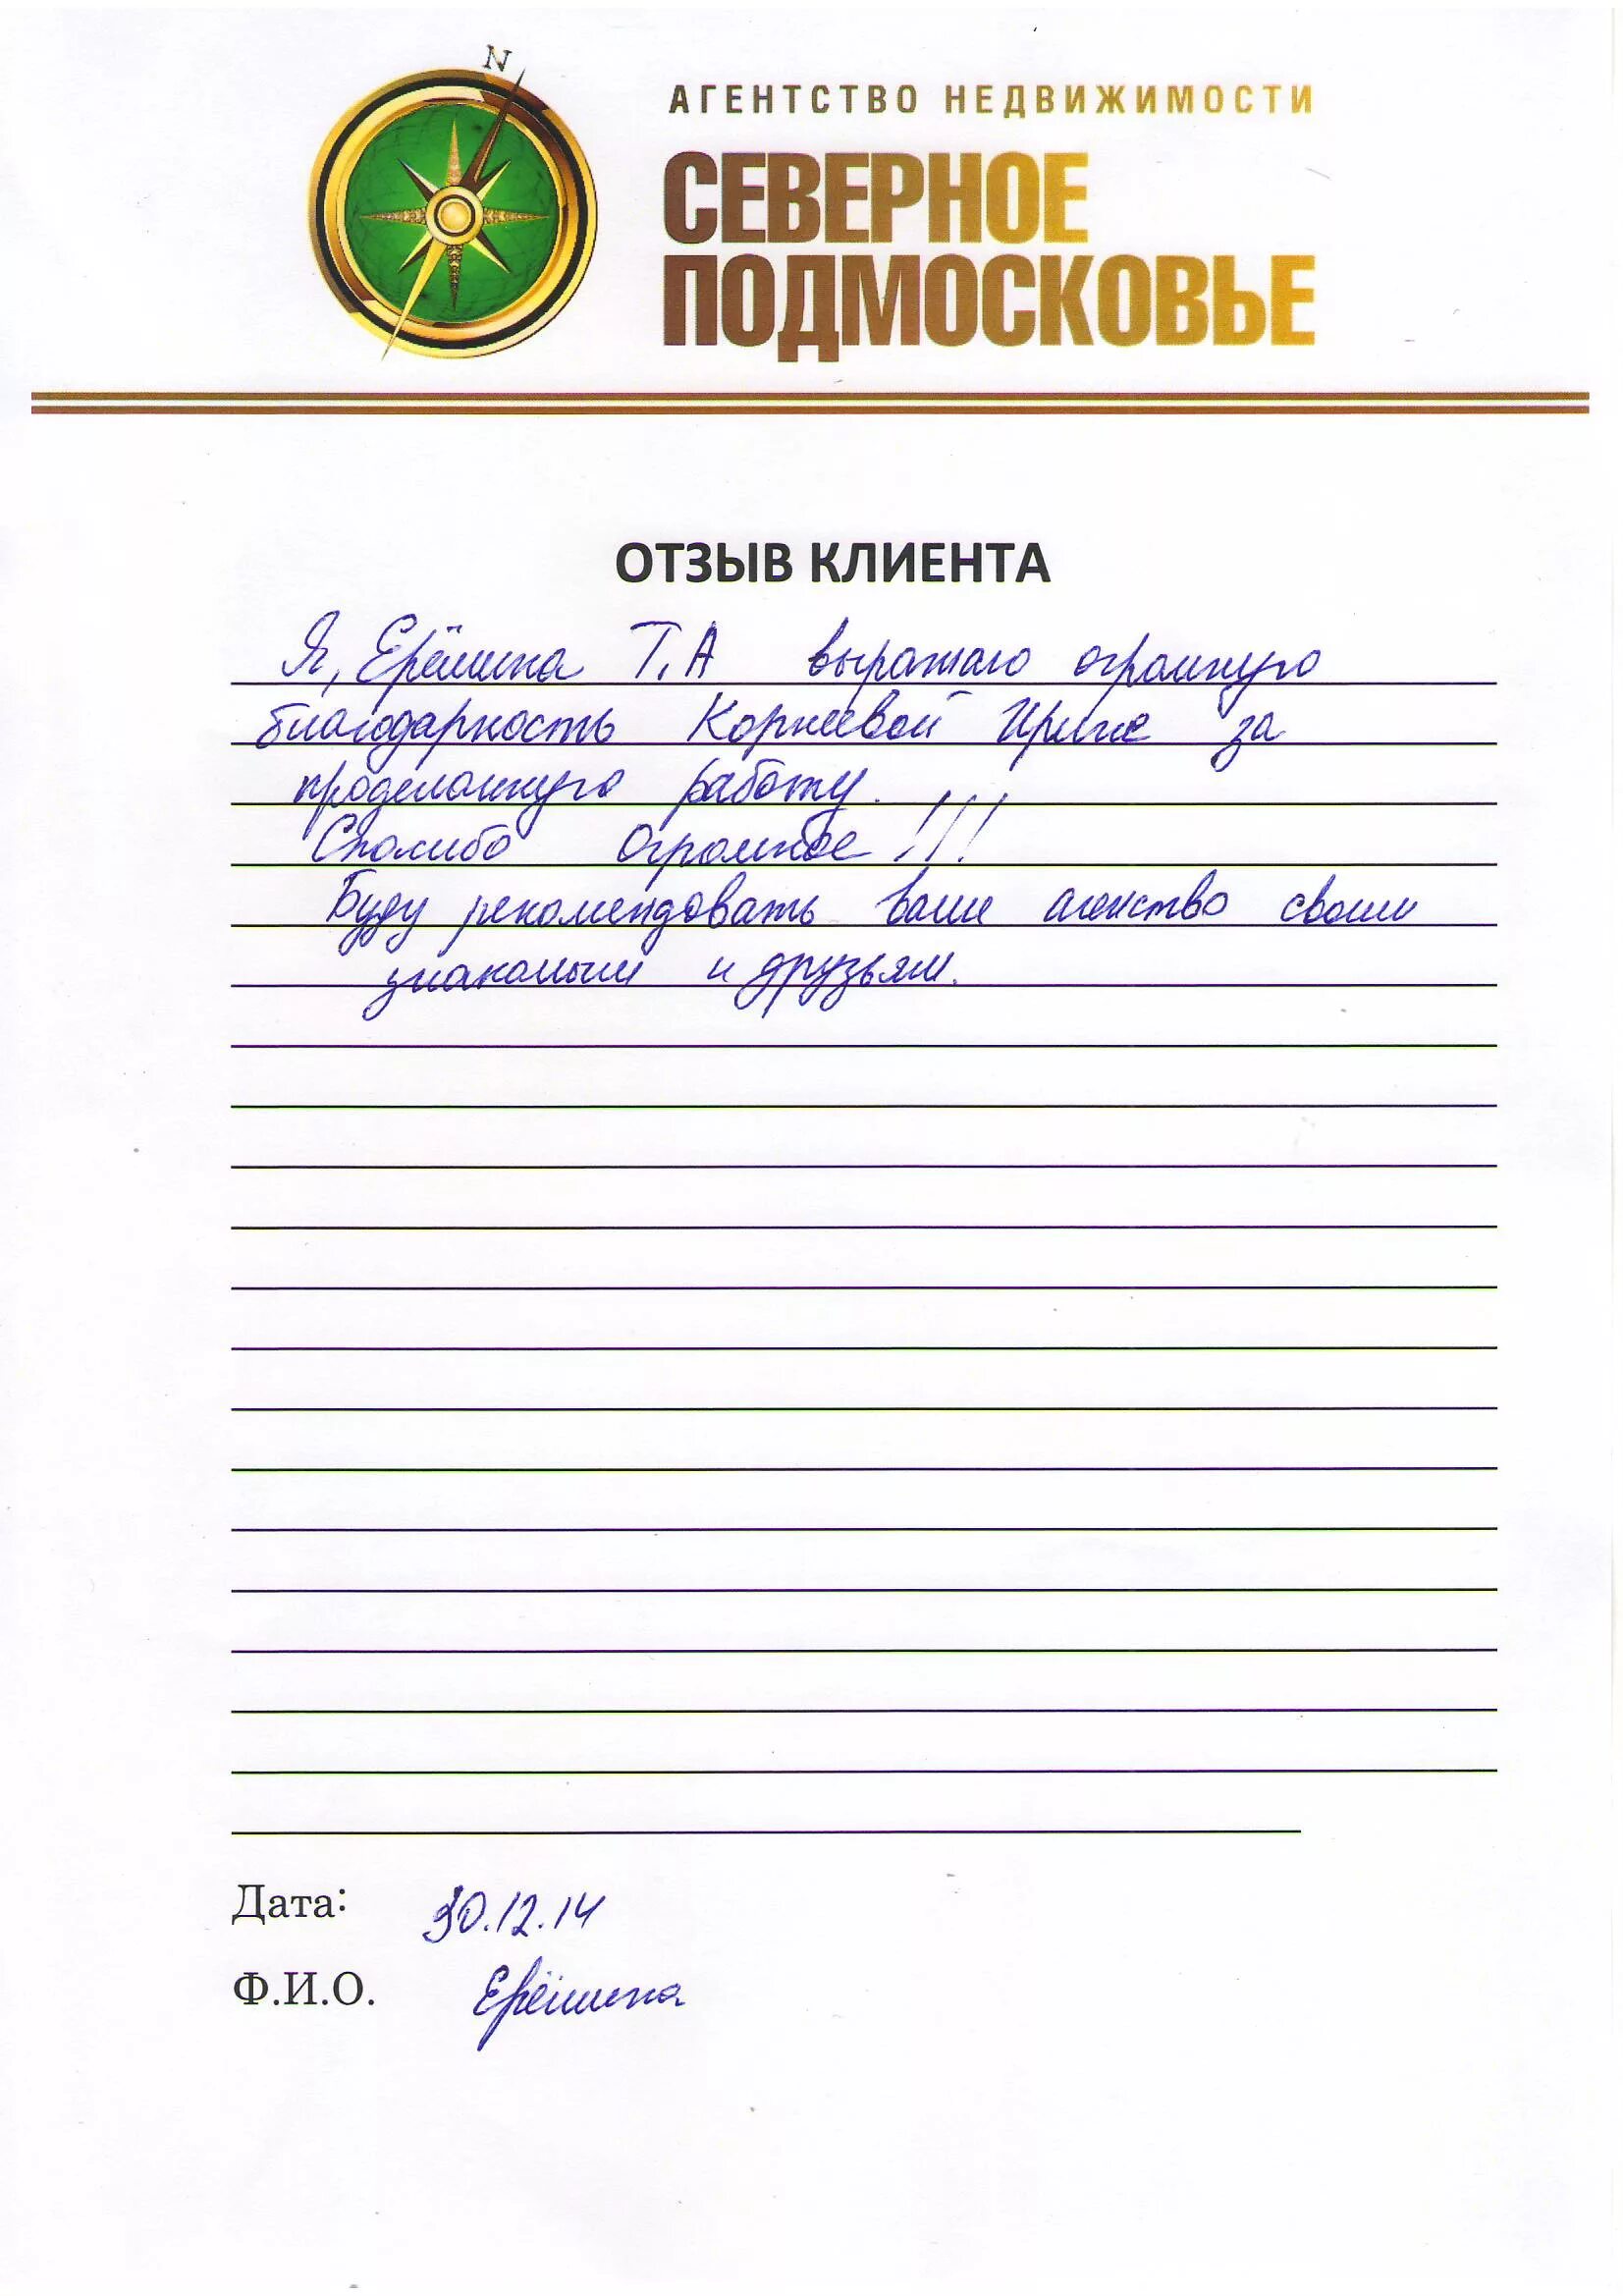 N
АГЕНТСТВО НЕДВИЖИМОСТИ
СЕВЕРНОЕ
ПОДМОСКОВЬЕ
ОТЗЫВ КЛИЕНТА
Я, Ерёмина Т.А выражаю огромную
благодарность Корнеевой Ирине за
проделанную работу.
Спасибо Огромное!!!
Буду рекомендовать ваше агенство своим
знакомым и друзьям.
Дата: 30.12.14
Ф.И.О. Ерёмина